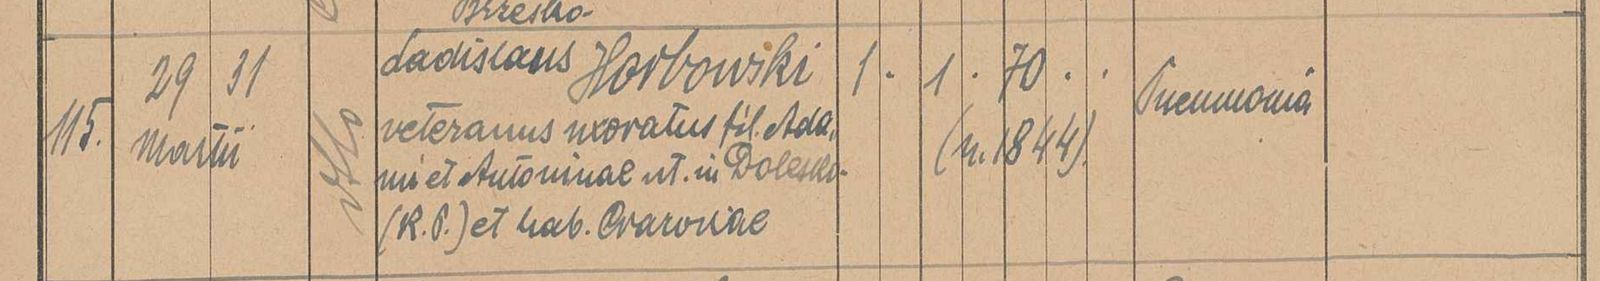 Brzesko-
115.
29 31
Martii
Ladislaus Horbowski
veteranus uxoratus fil. Ada,
mi et Antoninae nt. in Dolesko-
(R. P.) et hab. Cracoviae
1. 1. 70. .
(n. 1844)
Pneumonia